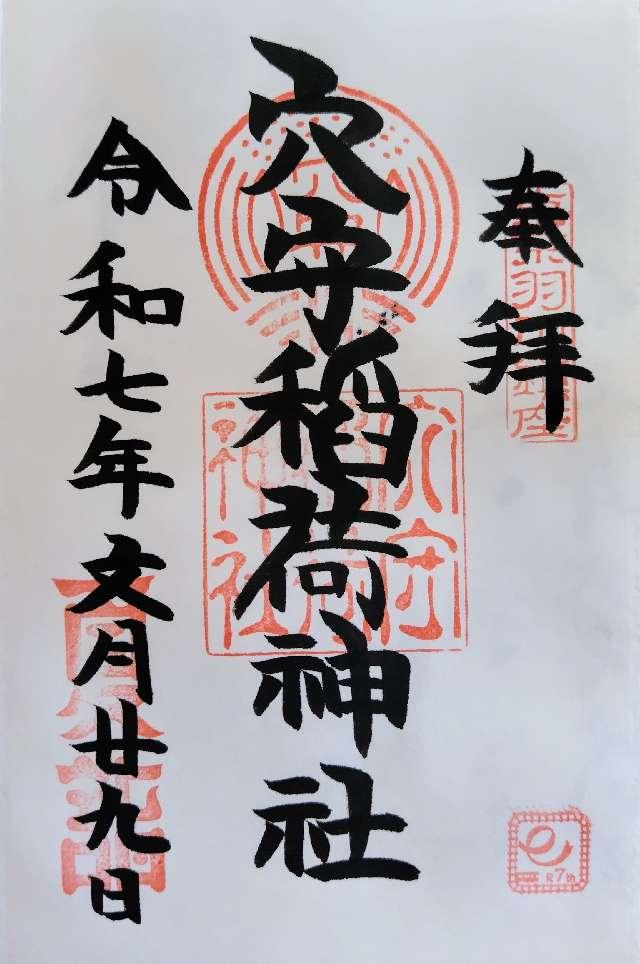 奉拝
穴守稲荷神社
令和七年文月廿九日
穴守
稲荷
神社
R7th